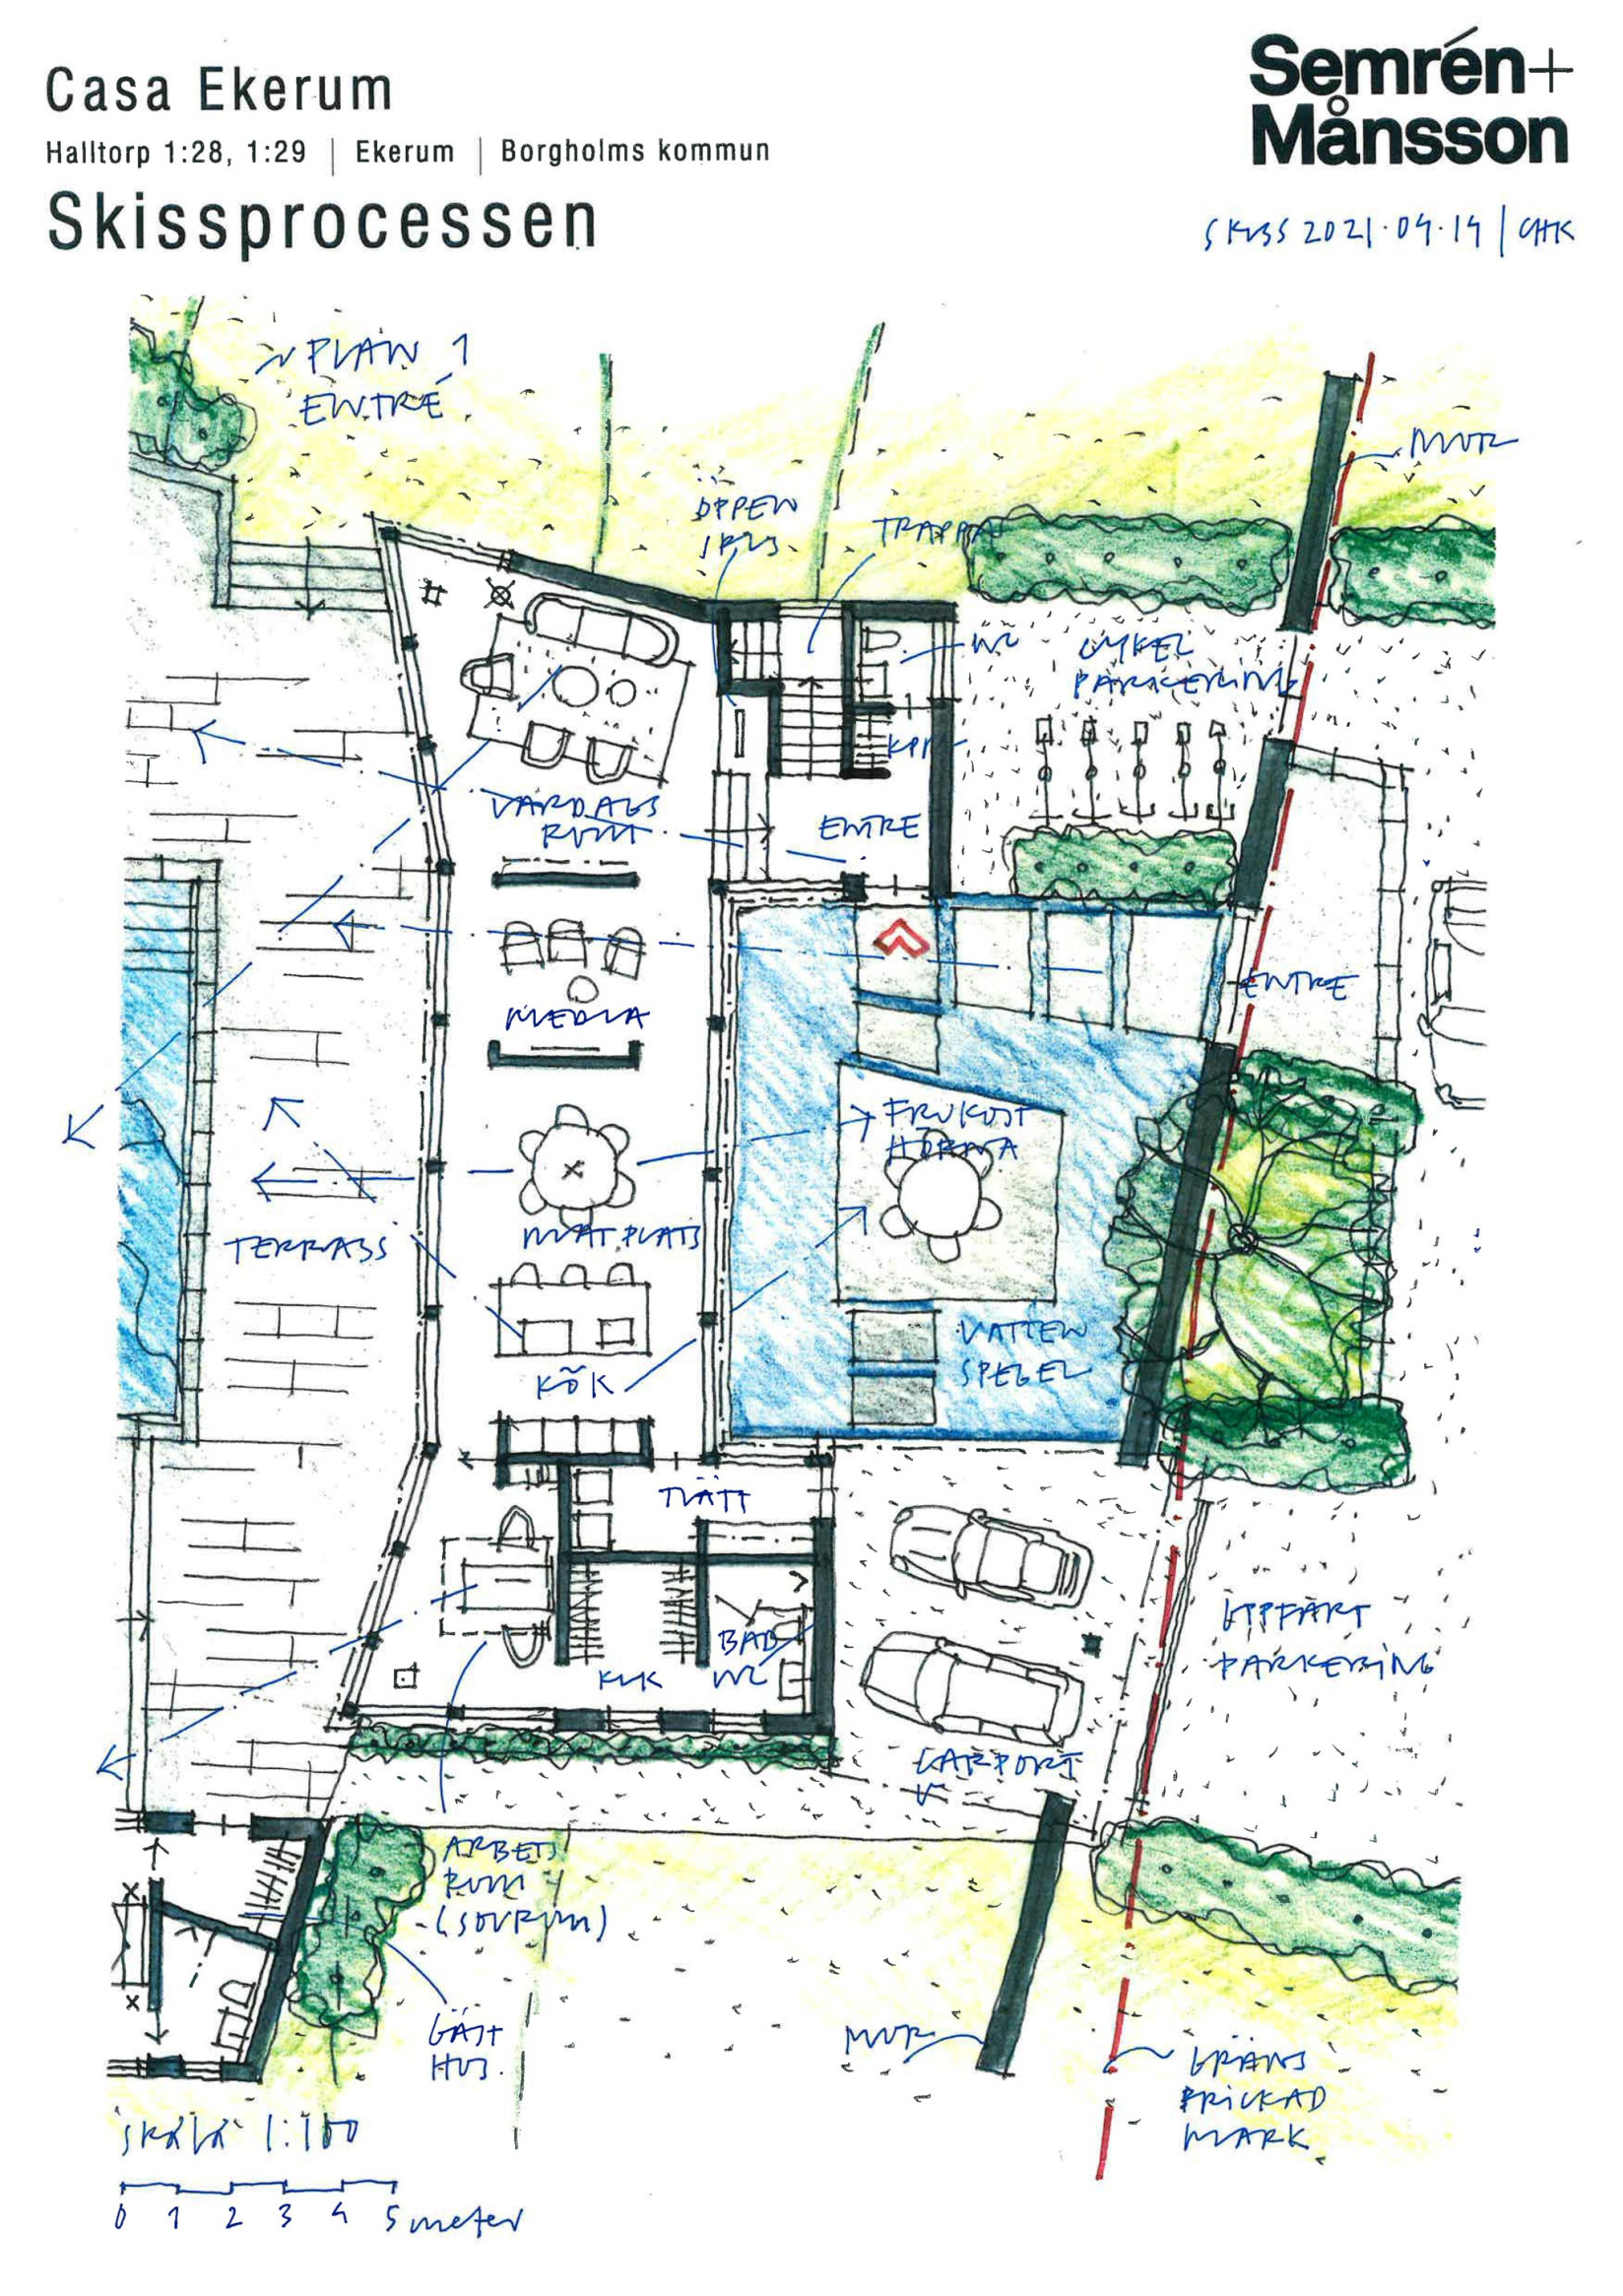 Casa Ekerum
Halltorp 1:28, 1:29 | Ekerum | Borgholms kommun
Skissprocessen
Semrén+
Månsson
SKISS 2021.04.14 | CHK
PLAN 1
ENTRÉ
MUR
ÖPPEN
SPIS
TRAPPA
WC
CYKEL
PARKERING
KPR
VARDAGS
RUM
ENTRE
MEDIA
ENTRE
FRUKOST
HÖRNA
MATPLATS
TERRASS
VATTEN
SPEGEL
KÖK
TVÄTT
UPPFART
PARKERING
BAD
WC
KLK
CARPORT
ARBETS
RUM
(SOVRUM)
GÄST
HUS.
MUR
GRÄNS
PRICKAD
MARK
SKALA 1:100
0 1 2 3 4 5 meter